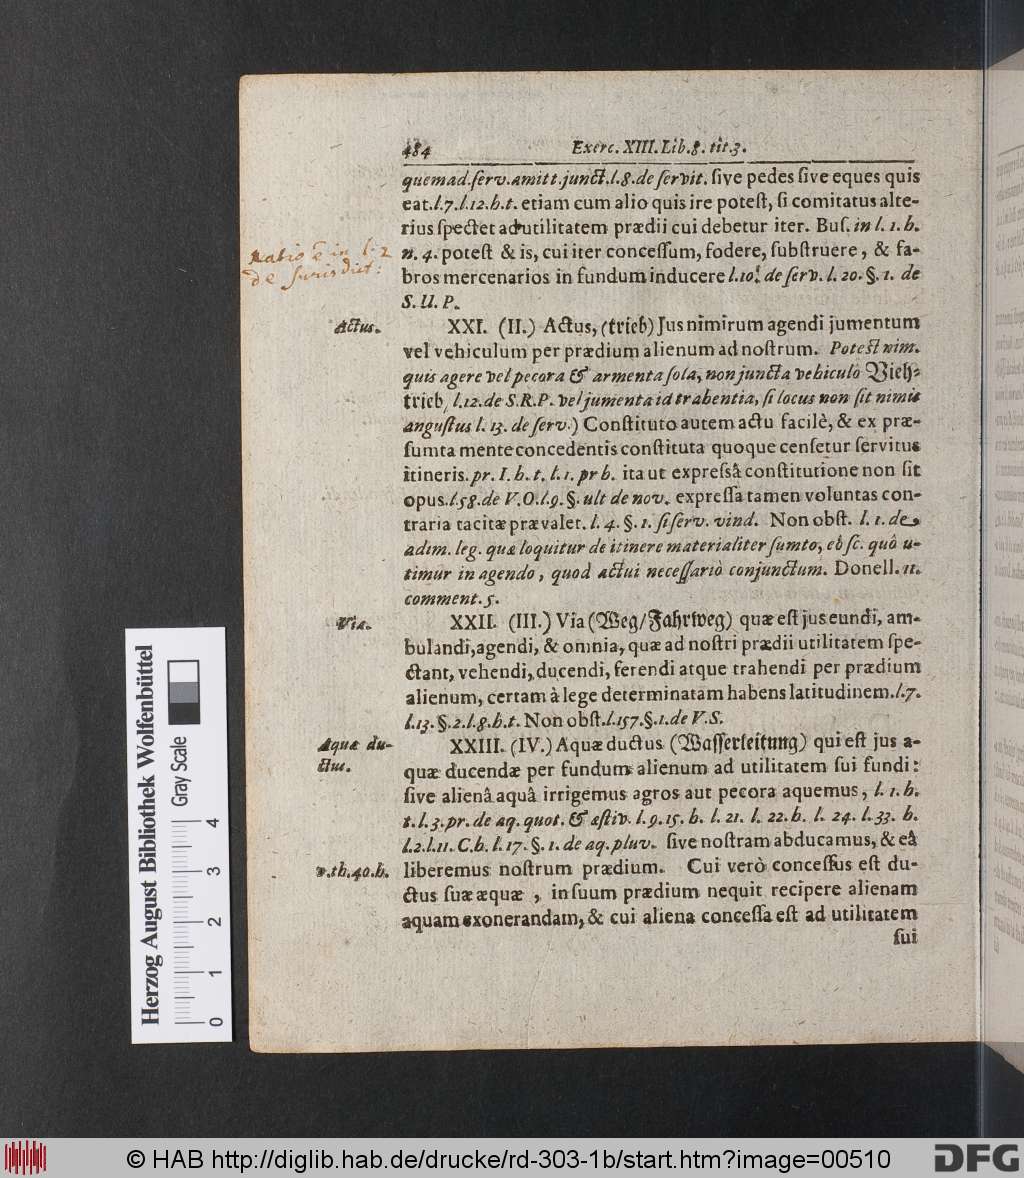 484 Exerc. XIII. Lib. 8. tit. 3.
quemad. ſerv. amitt. junct. l. 8. de ſervit. ſive pedes ſive eques quis
eat. l. 7. l. 12. h. t. etiam cum alio quis ire poteſt, ſi comitatus alte-
rius ſpectet ad utilitatem prædii cui debetur iter. Buſ. in l. 1. h.
n. 4. poteſt & is, cui iter conceſſum, fodere, ſubſtruere, & fa-
bros mercenarios in fundum inducere l. 10. de ſerv. l. 20. §. 1. de
S. U. P.
Ratio ē in l. 2
de Jurisdict:
Actus.
XXI. (II.) Actus, (trieb) Jus nimirum agendi jumentum
vel vehiculum per prædium alienum ad noſtrum. Poteſt nim.
quis agere vel pecora & armenta ſola, non juncta vehiculo Vieh-
trieb/ l. 12. de S. R. P. vel jumenta id trahentia, ſi locus non ſit nimis
anguſtus l. 13. de ſerv.) Conſtituto autem actu facilè, & ex præ-
ſumta mente concedentis conſtituta quoque cenſetur ſervitus
itineris. pr. I. h. t. l. 1. pr h. ita ut expreſsâ conſtitutione non ſit
opus. l. 58. de V. O. l. 9. §. ult de nov. expreſſa tamen voluntas con-
traria tacitæ prævalet. l. 4. §. 1. ſi ſerv. vind. Non obſt. l. 1. de
adim. leg. quæ loquitur de itinere materialiter ſumto, eò ſc. quô u-
timur in agendo, quod actui neceſſariò conjunctum. Donell. 11.
comment. 5.
Via.
XXII. (III.) Via (Weg/ Fahrweg) quæ eſt jus eundi, am-
bulandi, agendi, & omnia, quæ ad noſtri prædii utilitatem ſpe-
ctant, vehendi, ducendi, ferendi atque trahendi per prædium
alienum, certam à lege determinatam habens latitudinem. l. 7.
l. 13. §. 2. l. 8. h. t. Non obſt. l. 157. §. 1. de V. S.
Aquæ du-
ctus.
XXIII. (IV.) Aquæ ductus (Waſſerleitung) qui eſt jus a-
quæ ducendæ per fundum alienum ad utilitatem ſui fundi:
ſive alienâ aquâ irrigemus agros aut pecora aquemus, l. 1. h.
t. l. 3. pr. de aq. quot. & æſtiv. l. 9. 15. h. l. 21. l. 22. h. l. 24. l. 33. h.
l. 2. l. 11. C. h. l. 17. §. 1. de aq. pluv. ſive noſtram abducamus, & eâ
v. th. 40. h.
liberemus noſtrum prædium. Cui verò conceſſus eſt du-
ctus ſuæ æquæ, in ſuum prædium nequit recipere alienam
aquam exonerandam, & cui aliena conceſſa eſt ad utilitatem
ſui
Herzog August Bibliothek Wolfenbüttel
Gray Scale
0 1 2 3 4
© HAB http://diglib.hab.de/drucke/rd-303-1b/start.htm?image=00510
DFG